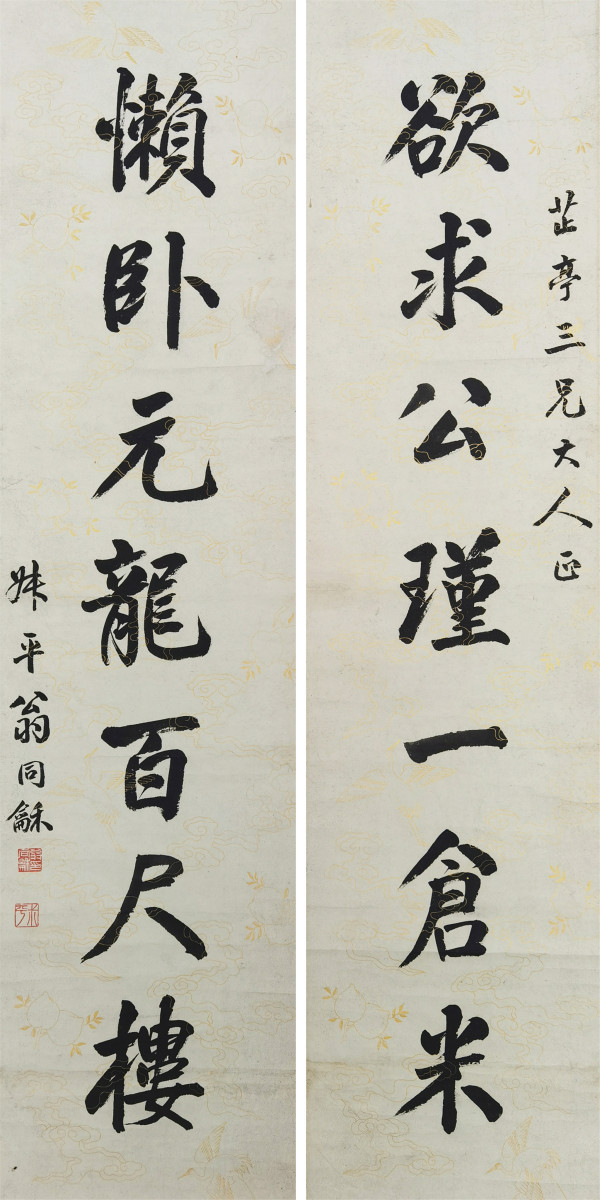 芷亭三兄大人正
欲求公瑾一倉米
懶卧元龍百尺樓
叔平翁同龢